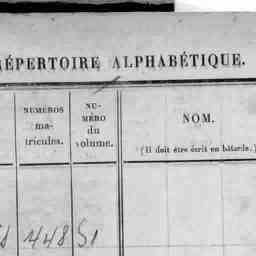 RÉPERTOIRE ALPHABÉTIQUE.
NUMÉROS
ma-
tricules.
NU-
MÉRO
du
volume.
NOM.
(Il doit être écrit en bâtarde.)
448 S1